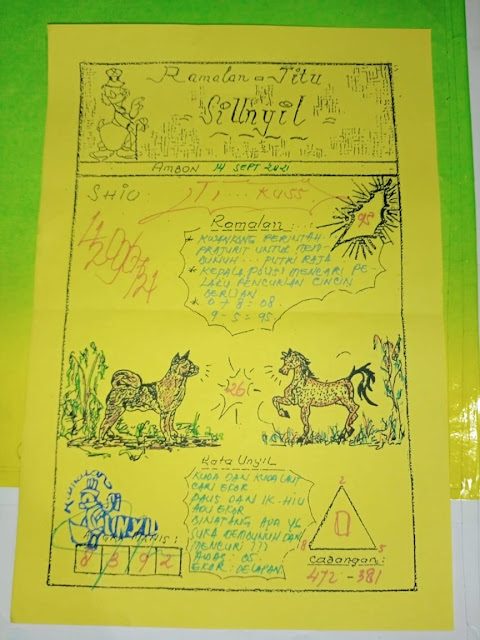 Ramalan - Jitu
SiUnyil
AMBON 14 SEPT 2021
SHIO: TI... KUSS.
95
Ramalan:...
* KWANKONG PERINTAH
PRAJURIT UNTUK MEM-
BUNUH... PUTRI RAJA
* KEPALA POLISI MENCARI PE-
LAKU PENCURIAN CINCIN
BERLIAN
* 0 + 8 = 08.
9 - 5 = 95.
26
Kata Unyil
KUDA DAN KUDA LAUT
CARI EKOR
PAUS DAN IK-HIU
ADU EKOR
BINATANG APA YG
SUKA MEMBUNUH DAN
MENCURI ???
AWAS: 05.
EKOR: DELAPAN
UNYIL
8 3 9 2
2
0
8
5
Cadangan:
472 - 381